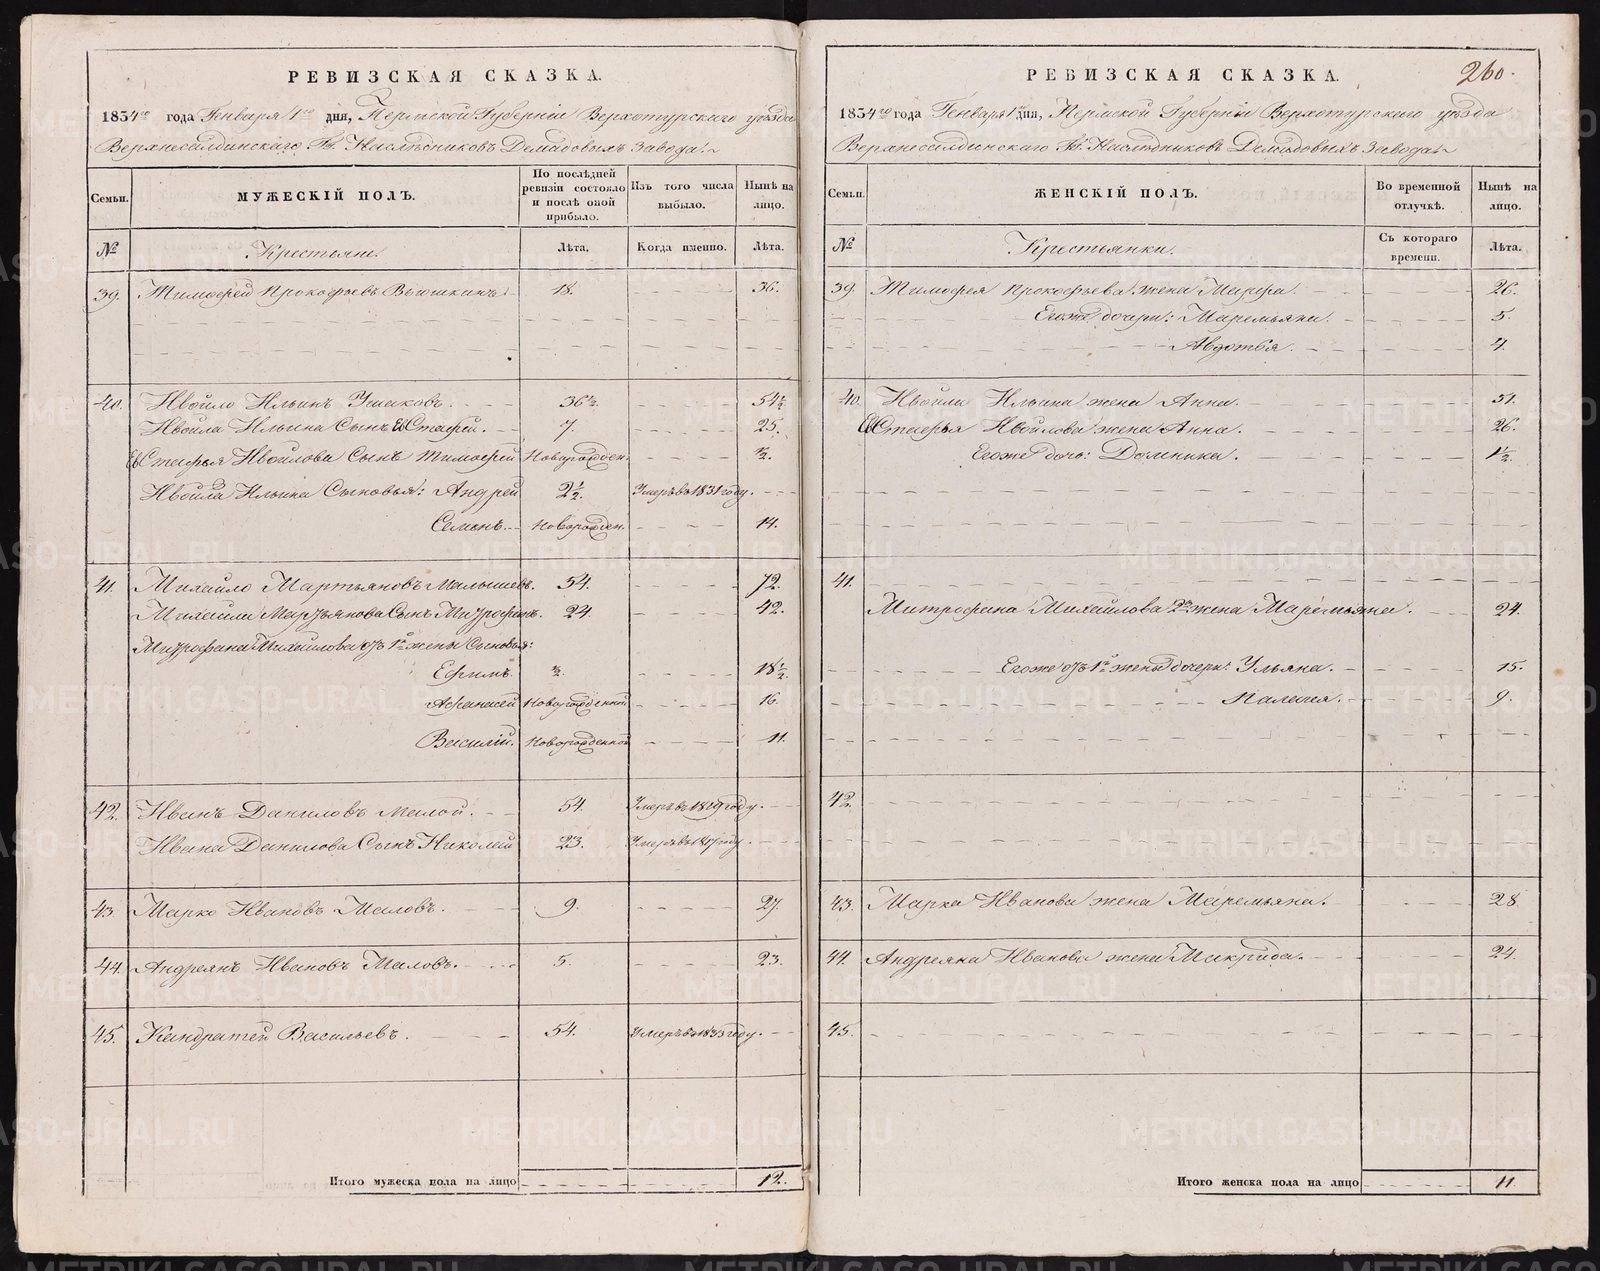 РЕВИЗСКАЯ СКАЗКА.
1834го года Генваря 1го дня, Пермской Губернiи Верхотурскаго уѣзда
Верхнесалдинскаго Гг. Наслѣдниковъ Демидовыхъ Завода.
Семьи.
МУЖЕСКIЙ ПОЛЪ.
По послѣдней ревизiи состояло и послѣ оной прибыло.
Изъ того числа выбыло.
Нынѣ на лицо.
№
Крестьяне.
Лѣта.
Когда именно.
Лѣта.
39. Тимофей Прокофьевъ Вьюшкинъ. 18. 36.
40. Ивойло Ильинъ Ушаковъ. 36½. 54½
Ивойла Ильина Сынъ Евстафей. 7. 25.
Евстафья Ивойлова Сынъ Тимофей Новорожден. ½.
Ивойла Ильина Сыновья: Андрей 2½. Умеръ въ 1831 году.
Семенъ. Новорожден. 14.
41. Михайло Мартьяновъ Малышевъ. 54. 72.
Михайли Мартьянова Сынъ Митрофанъ. 24. 42.
Митрофана Михайлова отъ 1й жены Сыновья:
Ефимъ. ½. 18½.
Афанасей Новорожденной 16.
Василiй. Новорожденной 11.
42. Иванъ Даниловъ Малой. 54. Умеръ въ 1829 году.
Ивана Данилова Сынъ Николай 23. Умеръ въ 1817 году.
43. Марко Ивановъ Маловъ. 9. 27.
44. Андреянъ Ивановъ Маловъ. 5. 23.
45. Кандратей Васильевъ. 54. Умеръ въ 1833 году.
Итого мужеска пола на лицо 12.
260.
РЕВИЗСКАЯ СКАЗКА.
1834го года Генваря 1го дня, Пермской Губернiи Верхотурскаго уѣзда
Верхнесалдинскаго Гг. Наслѣдниковъ Демидовыхъ Завода.
Семьи.
ЖЕНСКIЙ ПОЛЪ.
Во временной отлучкѣ.
Нынѣ на лицо.
№
Крестьянки.
Съ котораго времени.
Лѣта.
39. Тимофея Прокофьева жена Марфа. 26.
Егоже дочери: Маремьяна. 5.
Авдотья. 4.
40. Ивойла Ильина жена Анна. 51.
Евстафья Ивойлова жена Анна. 26.
Егоже дочь: Домника. 1½.
41.
Митрофана Михайлова 2я жена Маремьяна. 24.
Егоже отъ 1й жены дочери: Ульяна. 15.
Палагия. 9.
42.
43. Марка Иванова жена Маремьяна. 28.
44. Андреяна Иванова жена Макрида. 24.
45.
Итого женска пола на лицо 11
METRIKI.GASO-URAL.RU